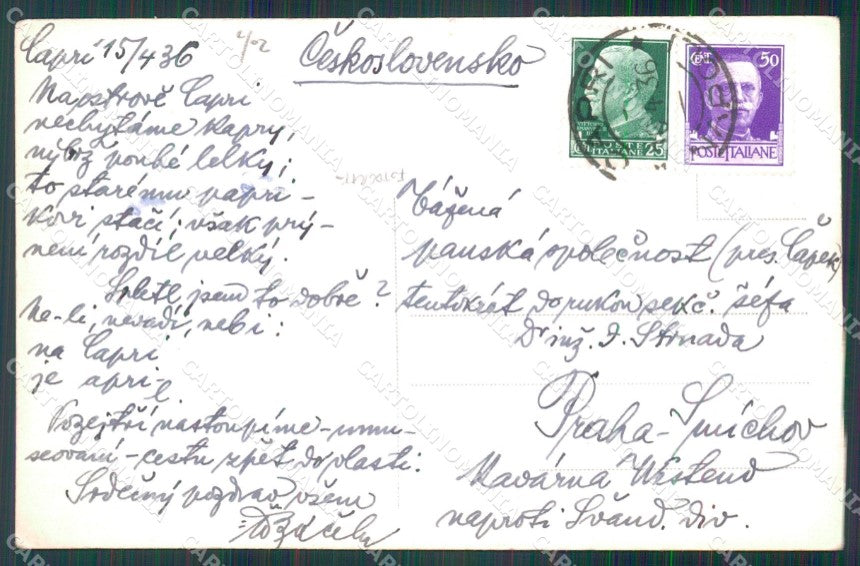 Capri 15/4 36
Na ostrově Capri
nechytáme kapry,
nýbrž pouhé lelky;
to starému papri-
kovi stačí; však prý-
není rozdíl velký.
jsem to dobře?
Ne-li, nevadí, neb i:
na Capri
je april.
Pozejtří nastoupíme -
- cestu zpět do vlasti.
Srdečný pozdrav všem
Československo
CAPRI
CENT. 50
POSTE ITALIANE
25
Vážená
panská společnost (pres. Čapek)
tentokrát do rukou sekč. šéfa
Dr inž. J. Strnada
Praha-Smíchov
Kavárna Westend
naproti Švand. div.
CARTOLINOMANIA